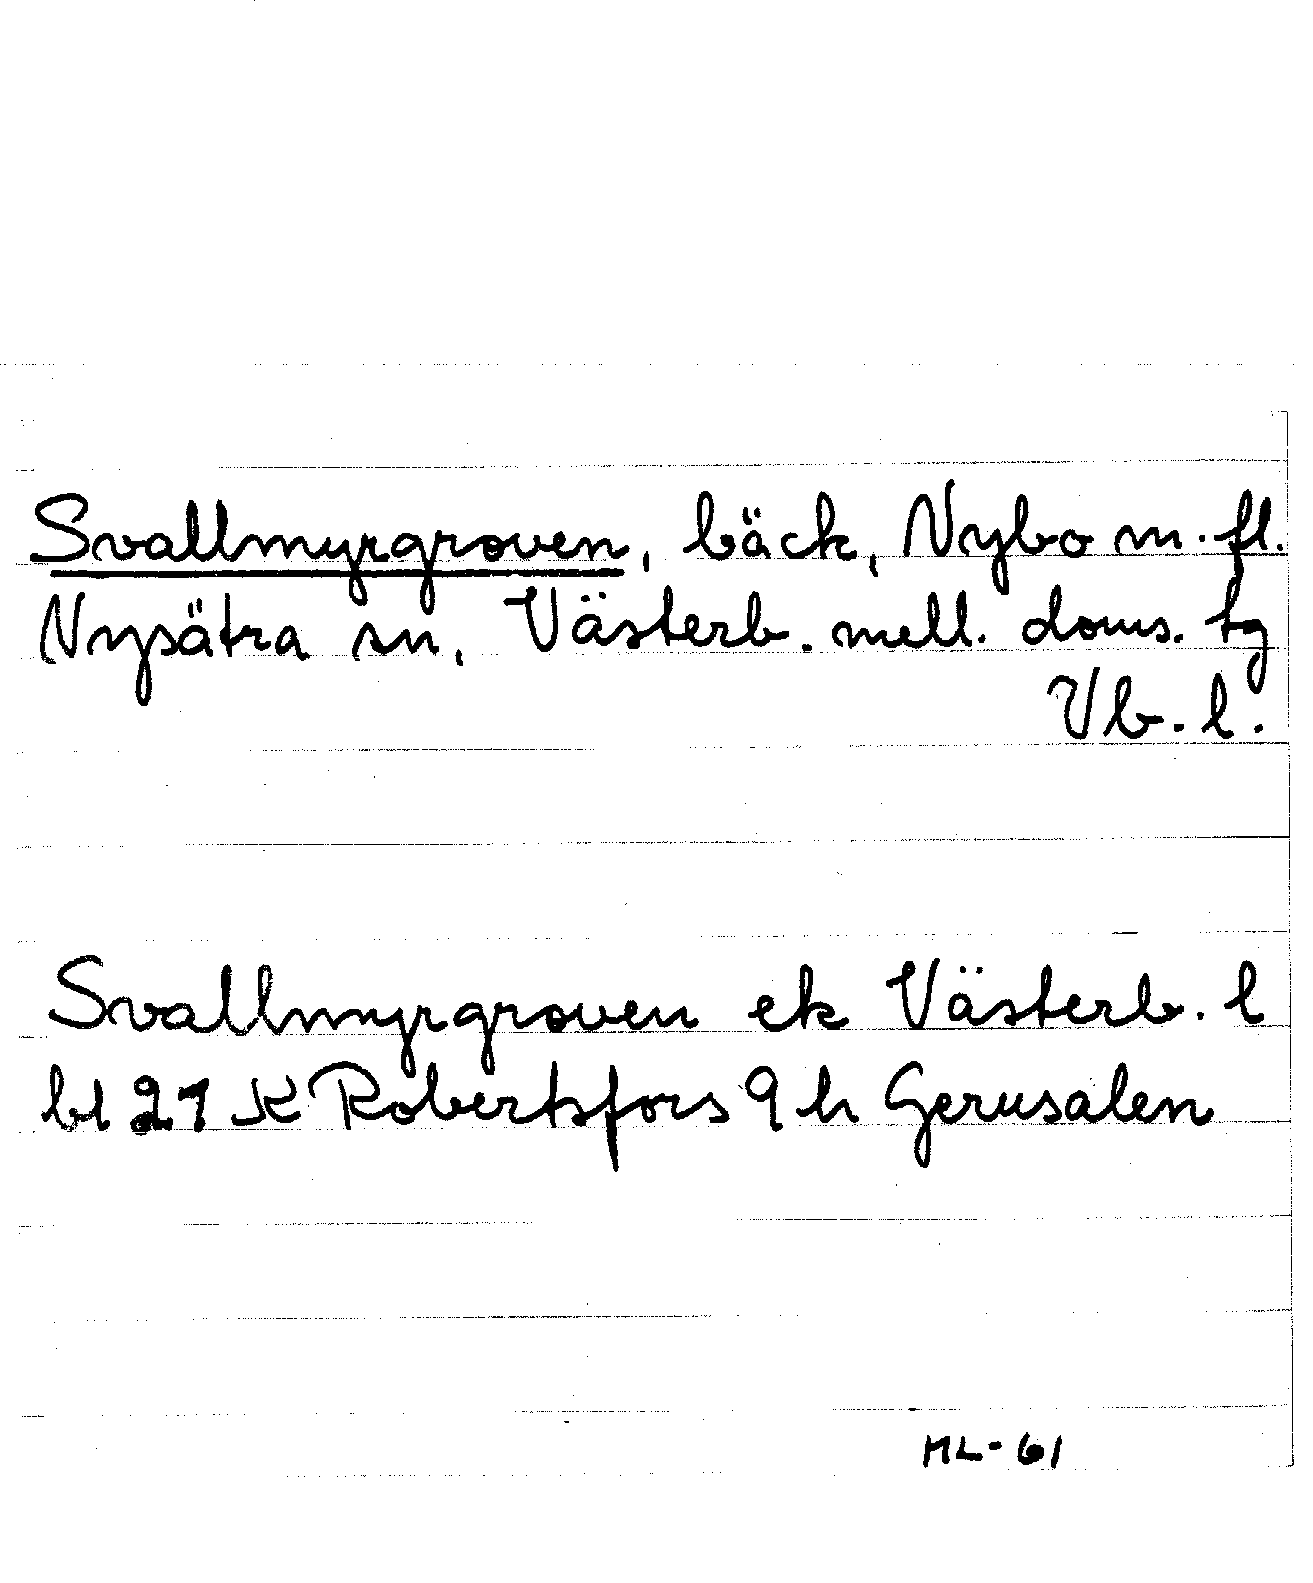 Svallmyrgroven, bäck, Nybo m. fl.
Nysätra sn, Västerb. mell. doms. tg
Vb. l.
Svallmyrgroven ek Västerb. l
bl 21 K Robertsfors 9 h Gerusalen
ML-61